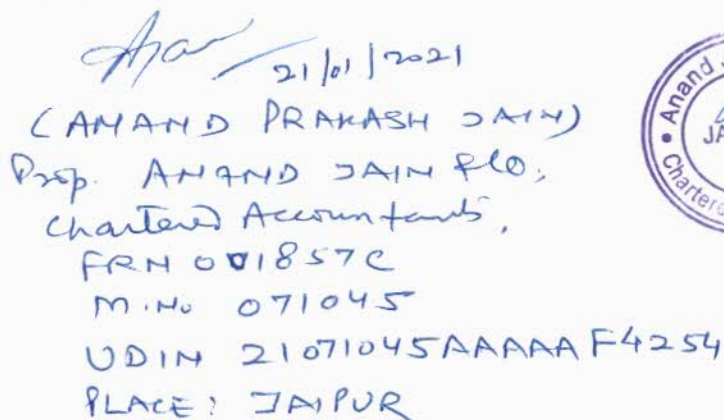 21/01/2021
(ANAND PRAKASH JAIN)
Prop. ANAND JAIN &CO,
Chartered Accountants,
FRN 001857C
M.No 071045
UDIN 21071045AAAAAF4254
PLACE: JAIPUR
Anand
JA
Chartere